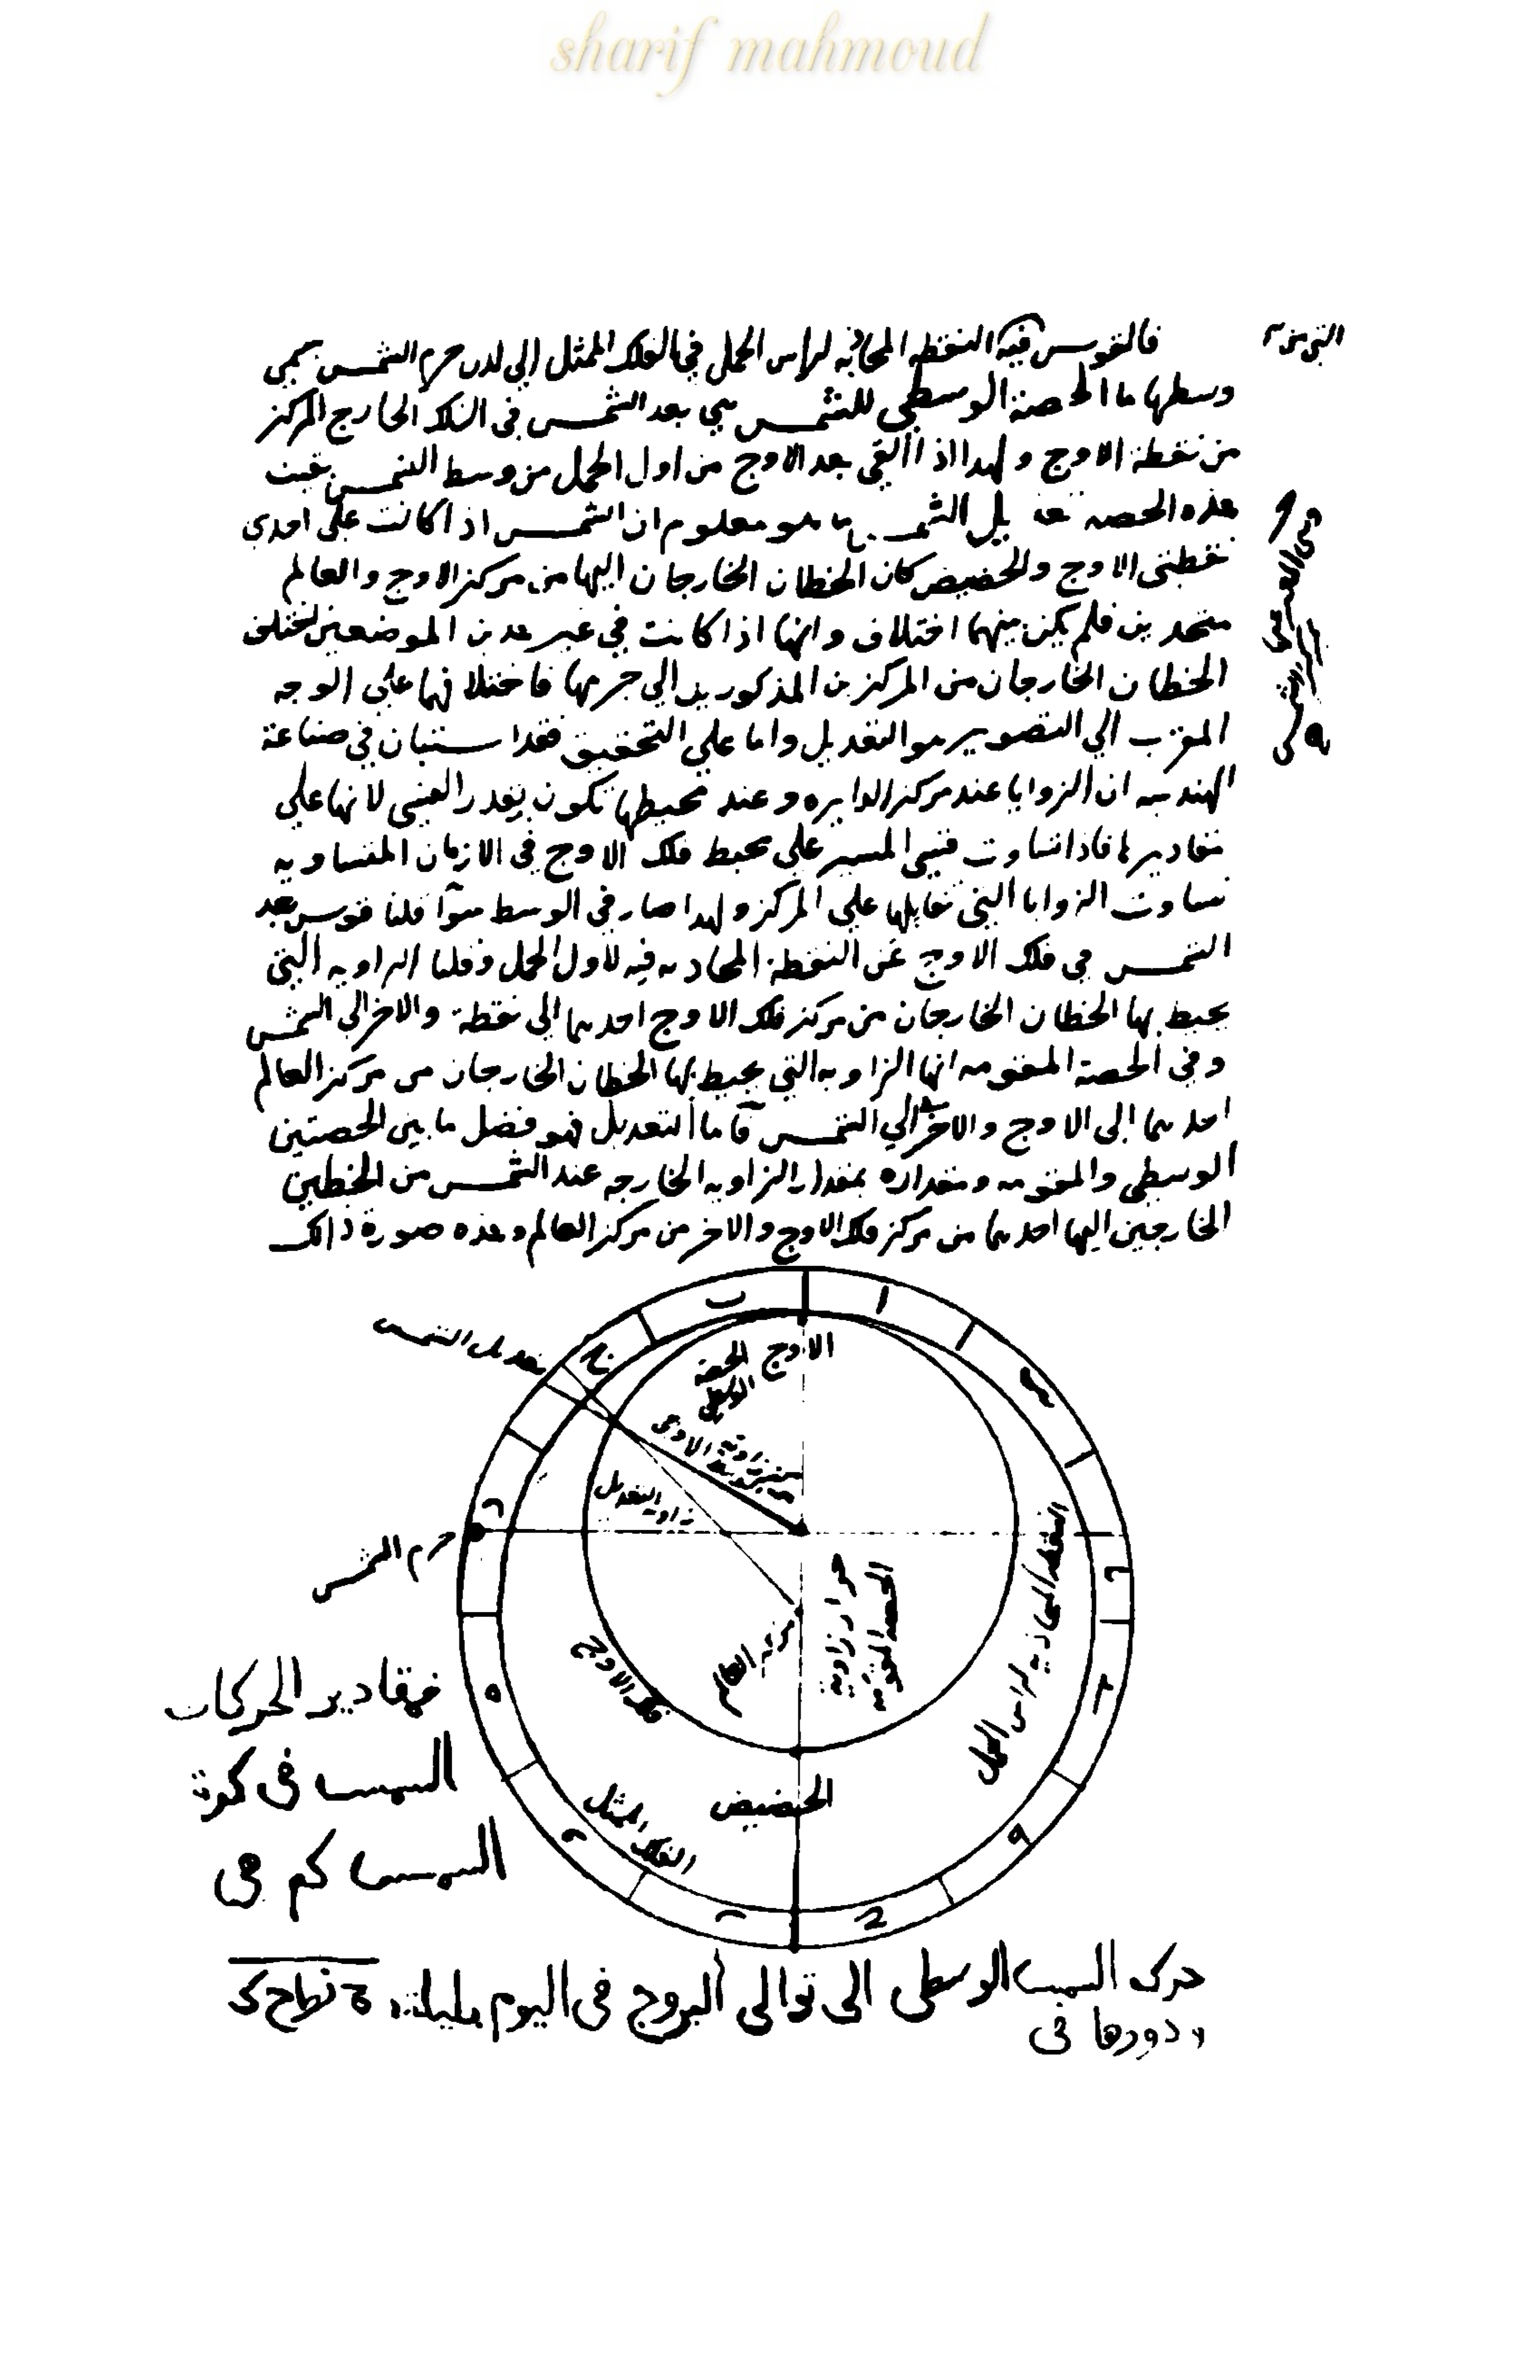 sharif mahmoud
التي من
فالقوس فيه النقطه المحاذيه لراس الحمل في الفلك الممثل الي لدن جرم الشمس يسمي
وسطها ما الحصة الوسطي للشمس هي بعد الشمس في الفلك الخارج المركز
من نقطة الاوج ولهدا اذا القي بعد الاوج من اول الحمل من وسط الشمس بقيت
هذه الحصه الشمس ما هو معلوم ان الشمس اذا كانت علي احدي
نقطتي الاوج والحضيض كان الخطان الخارجان اليها من مركز الاوج والعالم
متحدين فلم يكن بينهما اختلاف وانها اذا كانت في غير هدين الموضعين اختلف
الخطان الخارجان من المركزين المذكورين الي جرمها فاختلافهما علي الوجه
المقرب الي التصوير هو التعديل واما علي التحقيق فقد استبان في صناعة
الهندسه ان الزوايا عند مركز الدايره وعند محيطها تكون بقدر القسي لانها علي
مقاديرها فاذا تساوت قسي المسير علي محيط فلك الاوج في الازمان المتساويه
تساوت الزوايا التي تقابلها علي المركز ولهدا صار في الوسط سوآ قلنا قوس بعد
الشمس في فلك الاوج عن النقطة المحاديه فيه لاول الحمل وقلنا الزاويه التي
يحيط بها الخطان الخارجان من مركز فلك الاوج احدهما الي نقطة والاخر الي الشمس
وفي الحصة المقومه انها الزاويه التي يحيط بها الخطان الخارجان من مركز العالم
احدهما الي الاوج والاخر الي الشمس فاما التعديل فهو فضل ما بين الحصتين
الوسطي والمقومه ومقداره بمقدار الزاويه الخارجه عند الشمس من الخطين
الخارجين اليها احدهما من مركز فلك الاوج والاخر من مركز العالم وهذه صورة ذالك
تعديل الشمس
الاوج
الحصة
الوسطي
زاوية التعديل
جرم الشمس
النقطه المحاذيه لراس الحمل
زاوية
الحصة المقومه
مركز العالم
فلك الاوج
الحضيض
الفلك الممثل
فمقادير الحركات
الشمس في كرة
الشمس كم هي
حركه الشمس الوسطي الى توالي البروج في اليوم بليلته ة نط ح ك
ودورها في